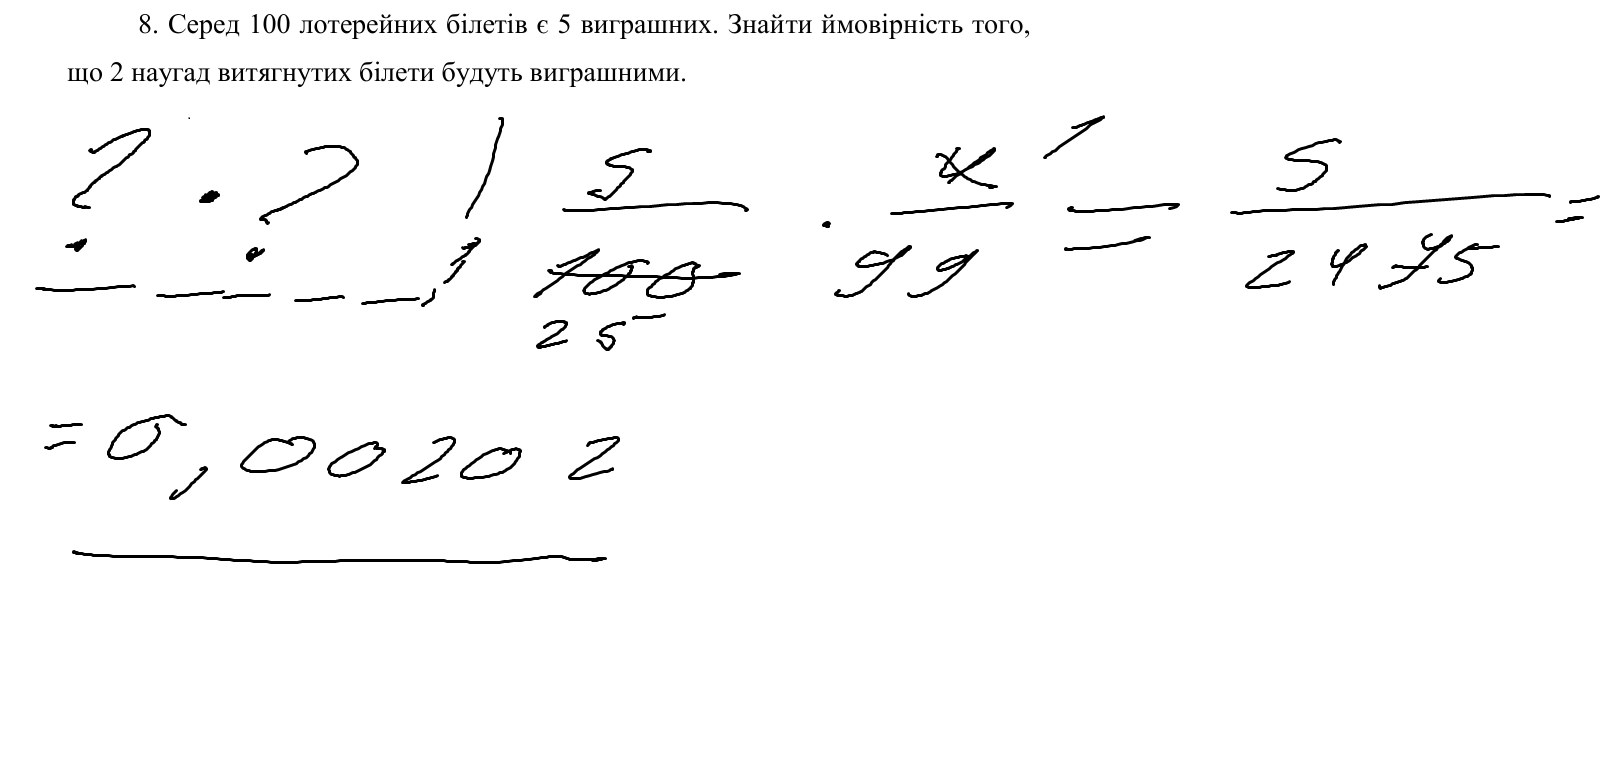 8. Серед 100 лотерейних білетів є 5 виграшних. Знайти ймовірність того,
що 2 наугад витягнутих білети будуть виграшними.
? · ? | 5/100 · 4/99 1 = 5/2475 =
25
= 0,00202